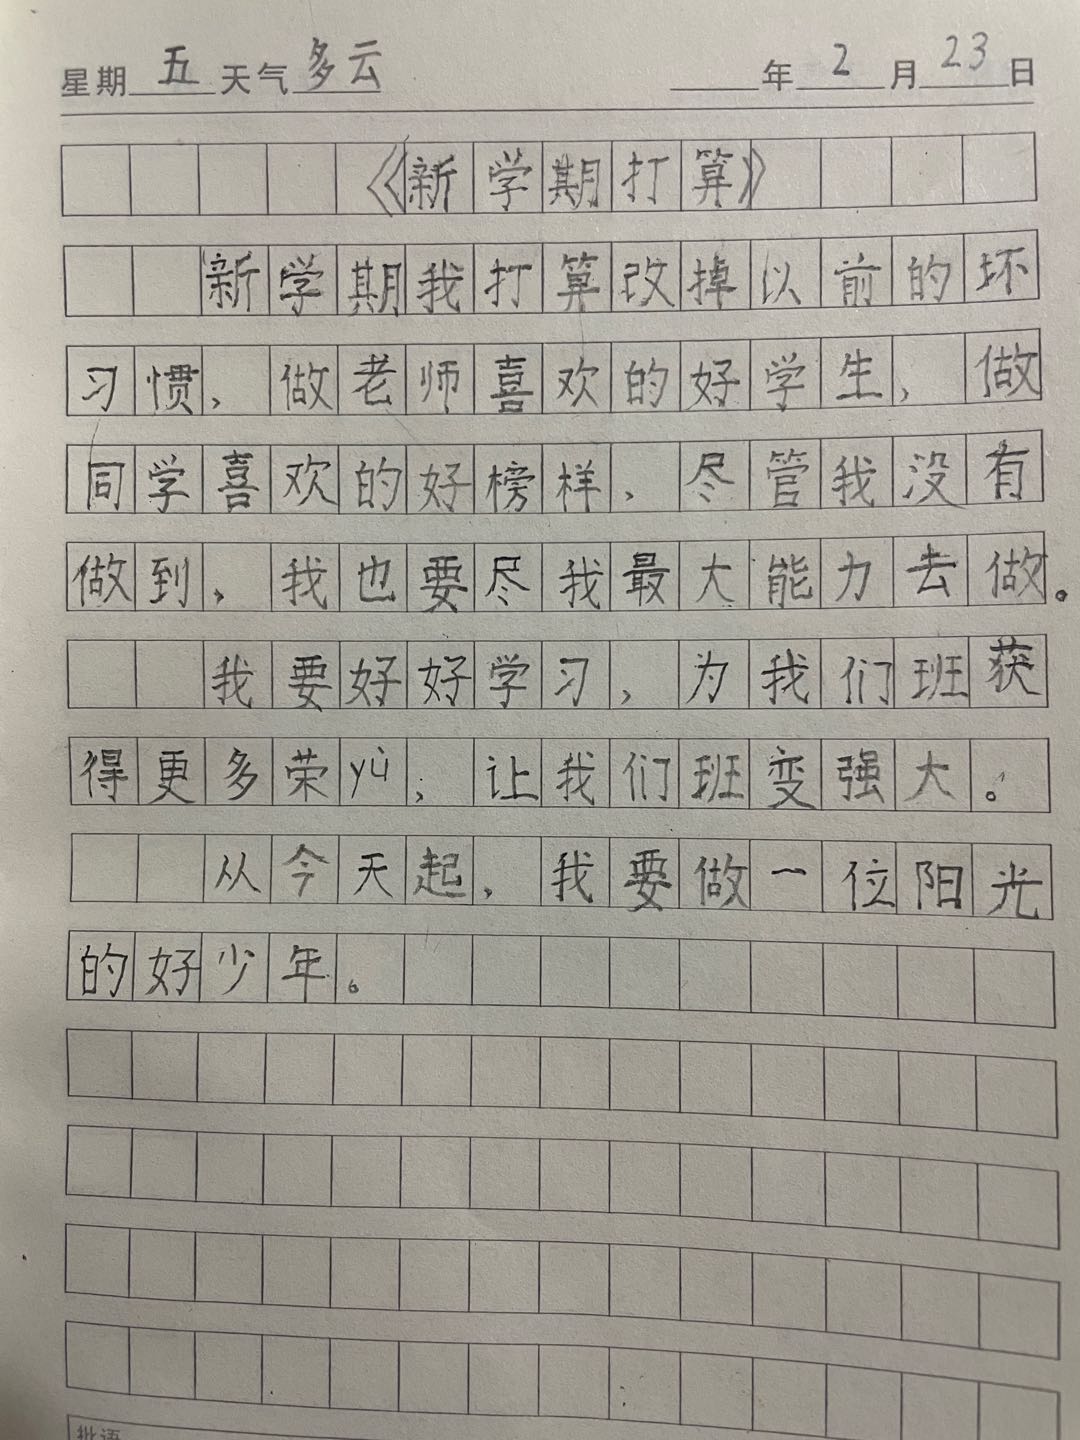 星期五天气多云 年2月23日
《新学期打算》
新学期我打算改掉以前的坏
习惯，做老师喜欢的好学生，做
同学喜欢的好榜样，尽管我没有
做到，我也要尽我最大能力去做。
我要好好学习，为我们班获
得更多荣yù，让我们班变强大。
从今天起，我要做一位阳光
的好少年。
批语